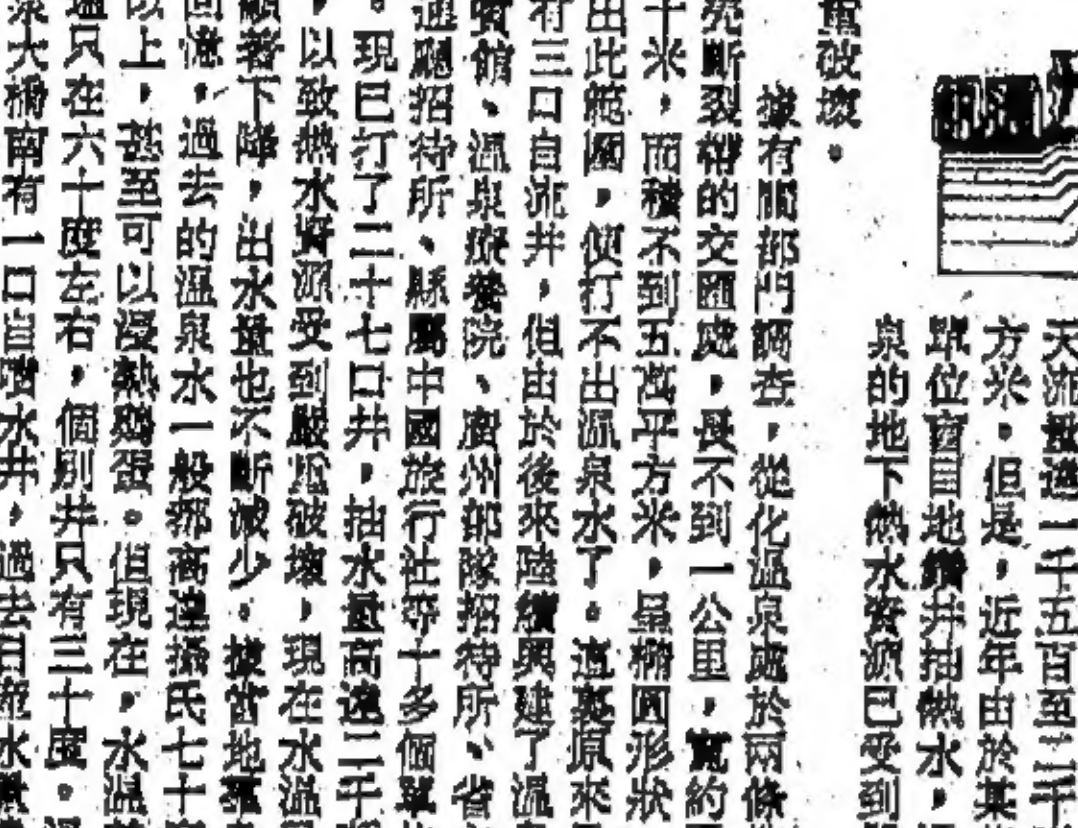 天流量達一千五百至三千
方米。但是,近年由於某
單位盲目地鑽井抽熱水,
泉的地下熱水資源已受到
重破壞。
據有關部門調查,從化溫泉處於兩條
斷裂帶的交匯處,長不到一公里,寬約
十米,面積不到五萬平方米,呈橢圓形狀
出此範圍,便打不出溫泉水了。這裏原來
有三口自流井,但由於後來陸續興建了溫
賓館、溫泉療養院、廣州部隊招待所、省
通廳招待所、縣屬中國旅行社等十多個單
。現已打了二十七口井,抽水量高達三千
,以致熱水資源受到嚴重破壞,現在水溫
顯著下降,出水量也不斷減少。據當地
回憶,過去的溫泉水一般都高達攝氏七十
以上,甚至可以浸熟鷄蛋。但現在,水溫
只在六十度左右,個別井只有三十度。
泉大橋南有一口自噴水井,過去自流水